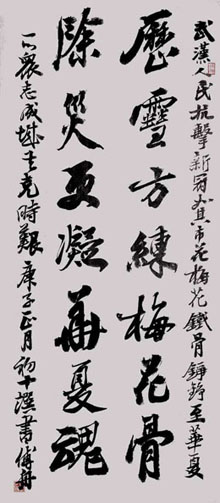 武漢人民抗擊新冠如其市花梅花鐵骨錚錚至華夏
歷雪方練梅花骨
除災更凝華夏魂
以眾志成城共克時艱庚子正月初十撰書